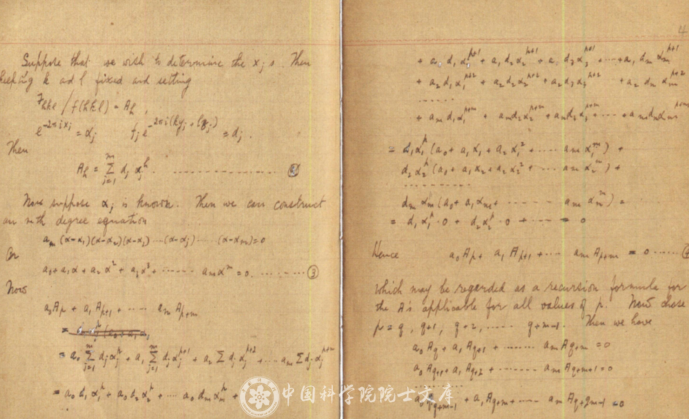 Suppose that we wish to determine the x_j s. Then
keeping k and l fixed and setting
F_{hkl} / f(hkl) = A_h,
e^{-2πi x_j} = α_j    f_j e^{-2πi(ky_j + lz_j)} = d_j.
Then
A_h = Σ_{j=1}^{m} d_j α_j^h. .................. ②
Now suppose α_j is known. Then we can construct
an mth degree equation
a_m (α-α_1)(α-α_2)(α-α_3) ... (α-α_j) ... (α-α_m) = 0
Or
a_0 + a_1 α + a_2 α^2 + a_3 α^3 + ...... a_m α^m = 0. ........ ③
Now
a_0 A_p + a_1 A_{p+1} + ..... a_m A_{p+m}
= a_0 Σ_{j=1}^{m} d_j α_j^p + a_1 Σ_{j=1}^{m} d_j α_j^{p+1} + a_2 Σ d_j α_j^{p+2} + ... a_m Σ d_j α_j^{p+m}
= a_0 d_1 α_1^p + a_0 d_2 α_2^p + ... a_0 d_m α_m^p +
4
+ a_1 d_1 α_1^{p+1} + a_1 d_2 α_2^{p+1} + a_1 d_3 α_3^{p+1} + ... + a_1 d_m α_m^{p+1}
+ a_2 d_1 α_1^{p+2} + a_2 d_2 α_2^{p+2} + a_2 d_3 α_3^{p+2} + a_2 d_m α_m^{p+2}
........
+ a_m d_1 α_1^{p+m} + a_m d_2 α_2^{p+m} + a_m d_3 α_3^{p+m} + ..... + a_m d_m α_m^{p+m}
= d_1 α_1^p (a_0 + a_1 α_1 + a_2 α_1^2 + ..... a_m α_1^m) +
d_2 α_2^p (a_0 + a_1 α_2 + a_2 α_2^2 + ..... a_m α_2^m) +
........
d_m α_m^p (a_0 + a_1 α_m + ........ a_m α_m^m) =
= d_1 α_1^p · 0 + d_2 α_2^p · 0 + ...... = 0
Hence a_0 A_p + a_1 A_{p+1} + ..... a_m A_{p+m} = 0 ......
which may be regarded as a recursion formula for
the A's applicable for all values of p. Now chose
p = q, q+1, q+2, ...... q+m-1 Then we have
a_0 A_q + a_1 A_{q+1} + ...... a_m A_{q+m} = 0
a_0 A_{q+1} + a_1 A_{q+2} + ...... a_m A_{q+m+1} = 0
+ a_1 A_{q+m} + ..... a_m A_{q+2m-1} = 0
中国科学院院士文库